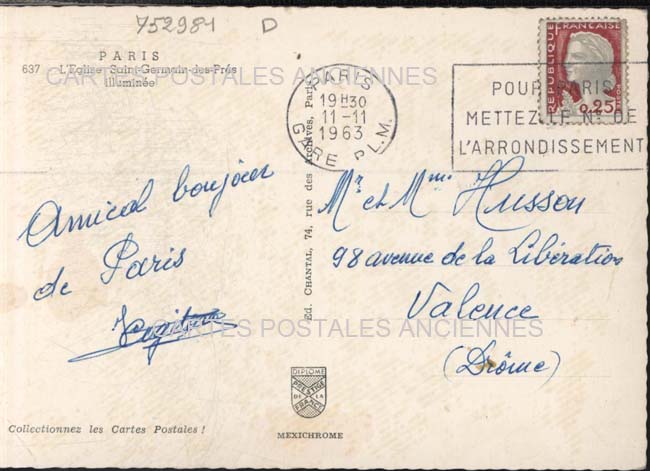 752981 D
PARIS
637 L'Eglise Saint-Germain-des-Prés
illuminée
CARTES POSTALES ANCIENNES
PARIS
19H30
11-11
1963
GARE P.L.M.
REPUBLIQUE FRANÇAISE
0,25
POUR PARIS
METTEZ LE N° DE
L'ARRONDISSEMENT
Amical boujour
de Paris
Ed. CHANTAL, 74, rue des Archives, Paris
Mr et Mme Husson
98 avenue de la Libération
Valence
(Drôme)
CARTES POSTALES ANCIENNES
DIPLOME
PRESTIGE
DE LA
FRANCE
Collectionnez les Cartes Postales !
MEXICHROME